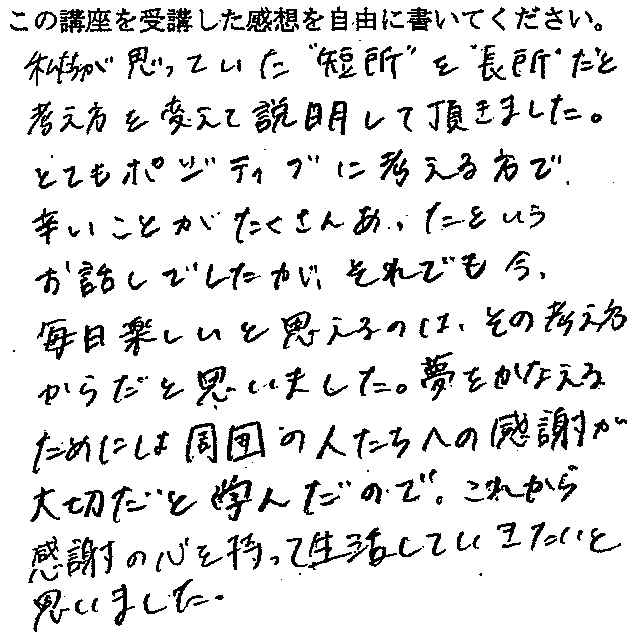 この講座を受講した感想を自由に書いてください。
私たちが思っていた"短所"を"長所"だと
考え方を変えて説明して頂きました。
とてもポジティブに考える方で、
辛いことがたくさんあったという
お話しでしたが、それでも今、
毎日楽しいと思えるのは、その考え方
からだと思いました。夢をかなえる
ためには周囲の人たちへの感謝が
大切だと学んだので。これから
感謝の心を持って生活していきたいと
思いました。